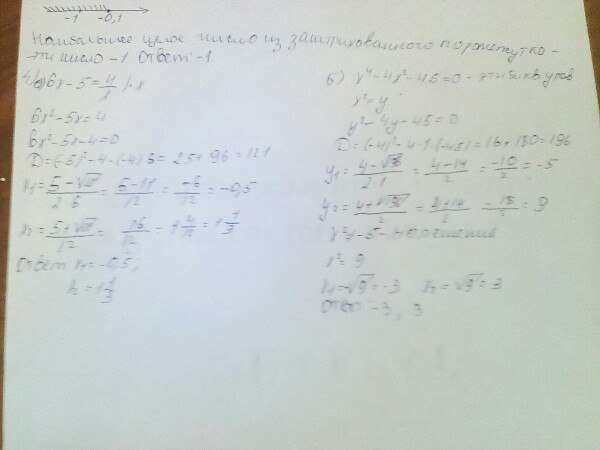 -1 -0,1
Наибольшее целое число из заштрихованного промежутка -
это число -1 Ответ: -1
6x - 5 = 4/x |·x
6x² - 5x = 4
6x² - 5x - 4 = 0
D = (-5)² - 4·(-4)·6 = 25 + 96 = 121
x₁ = (5 - √121)/(2·6) = (5 - 11)/12 = -6/12 = -0,5
x₂ = (5 + √121)/12 = 16/12 = 1 4/12 = 1 1/3
Ответ: x₁ = -0,5;
x₂ = 1 1/3
б) x⁴ - 4x² - 45 = 0 -
x² = y
y² - 4y - 45 = 0
D = (-4)² - 4·1·(-45) = 16 + 180 = 196
y₁ = (4 - √196)/(2·1) = (4 - 14)/2 = -10/2 = -5
y₂ = (4 + √196)/2 = (4 + 14)/2 = 18/2 = 9
x² = -5 - нет решения
x² = 9
x₁ = -√9 = -3 x₂ = √9 = 3
Ответ: -3, 3